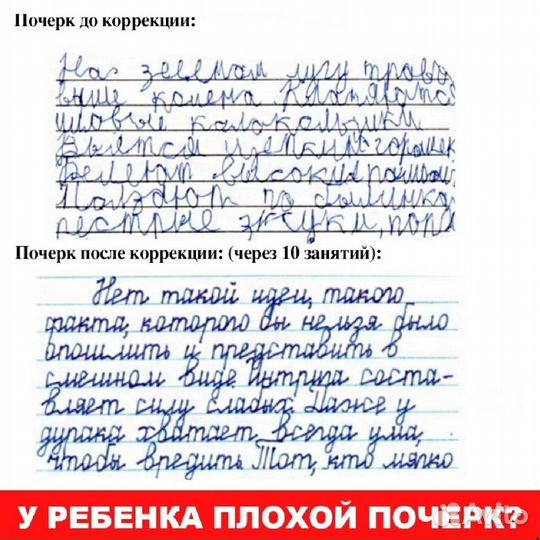 Почерк до коррекции:
На зеленом лугу трова
выше колена. Клонятся
лиловые колокольчики
Вьется цепкий горошек
Белеют высокие ромашки
Ползают по былинка
пестрые жуки, пор
Почерк после коррекции: (через 10 занятий):
Нет такой идеи, такого
факта, которого бы нельзя было
опошлить и представить в
смешном виде. Интрига соста-
вляет силу слабых. Даже у
дурака хватает всегда ума,
чтобы вредить. Тот, кто мягко
У РЕБЕНКА ПЛОХОЙ ПОЧЕРК?
Avito